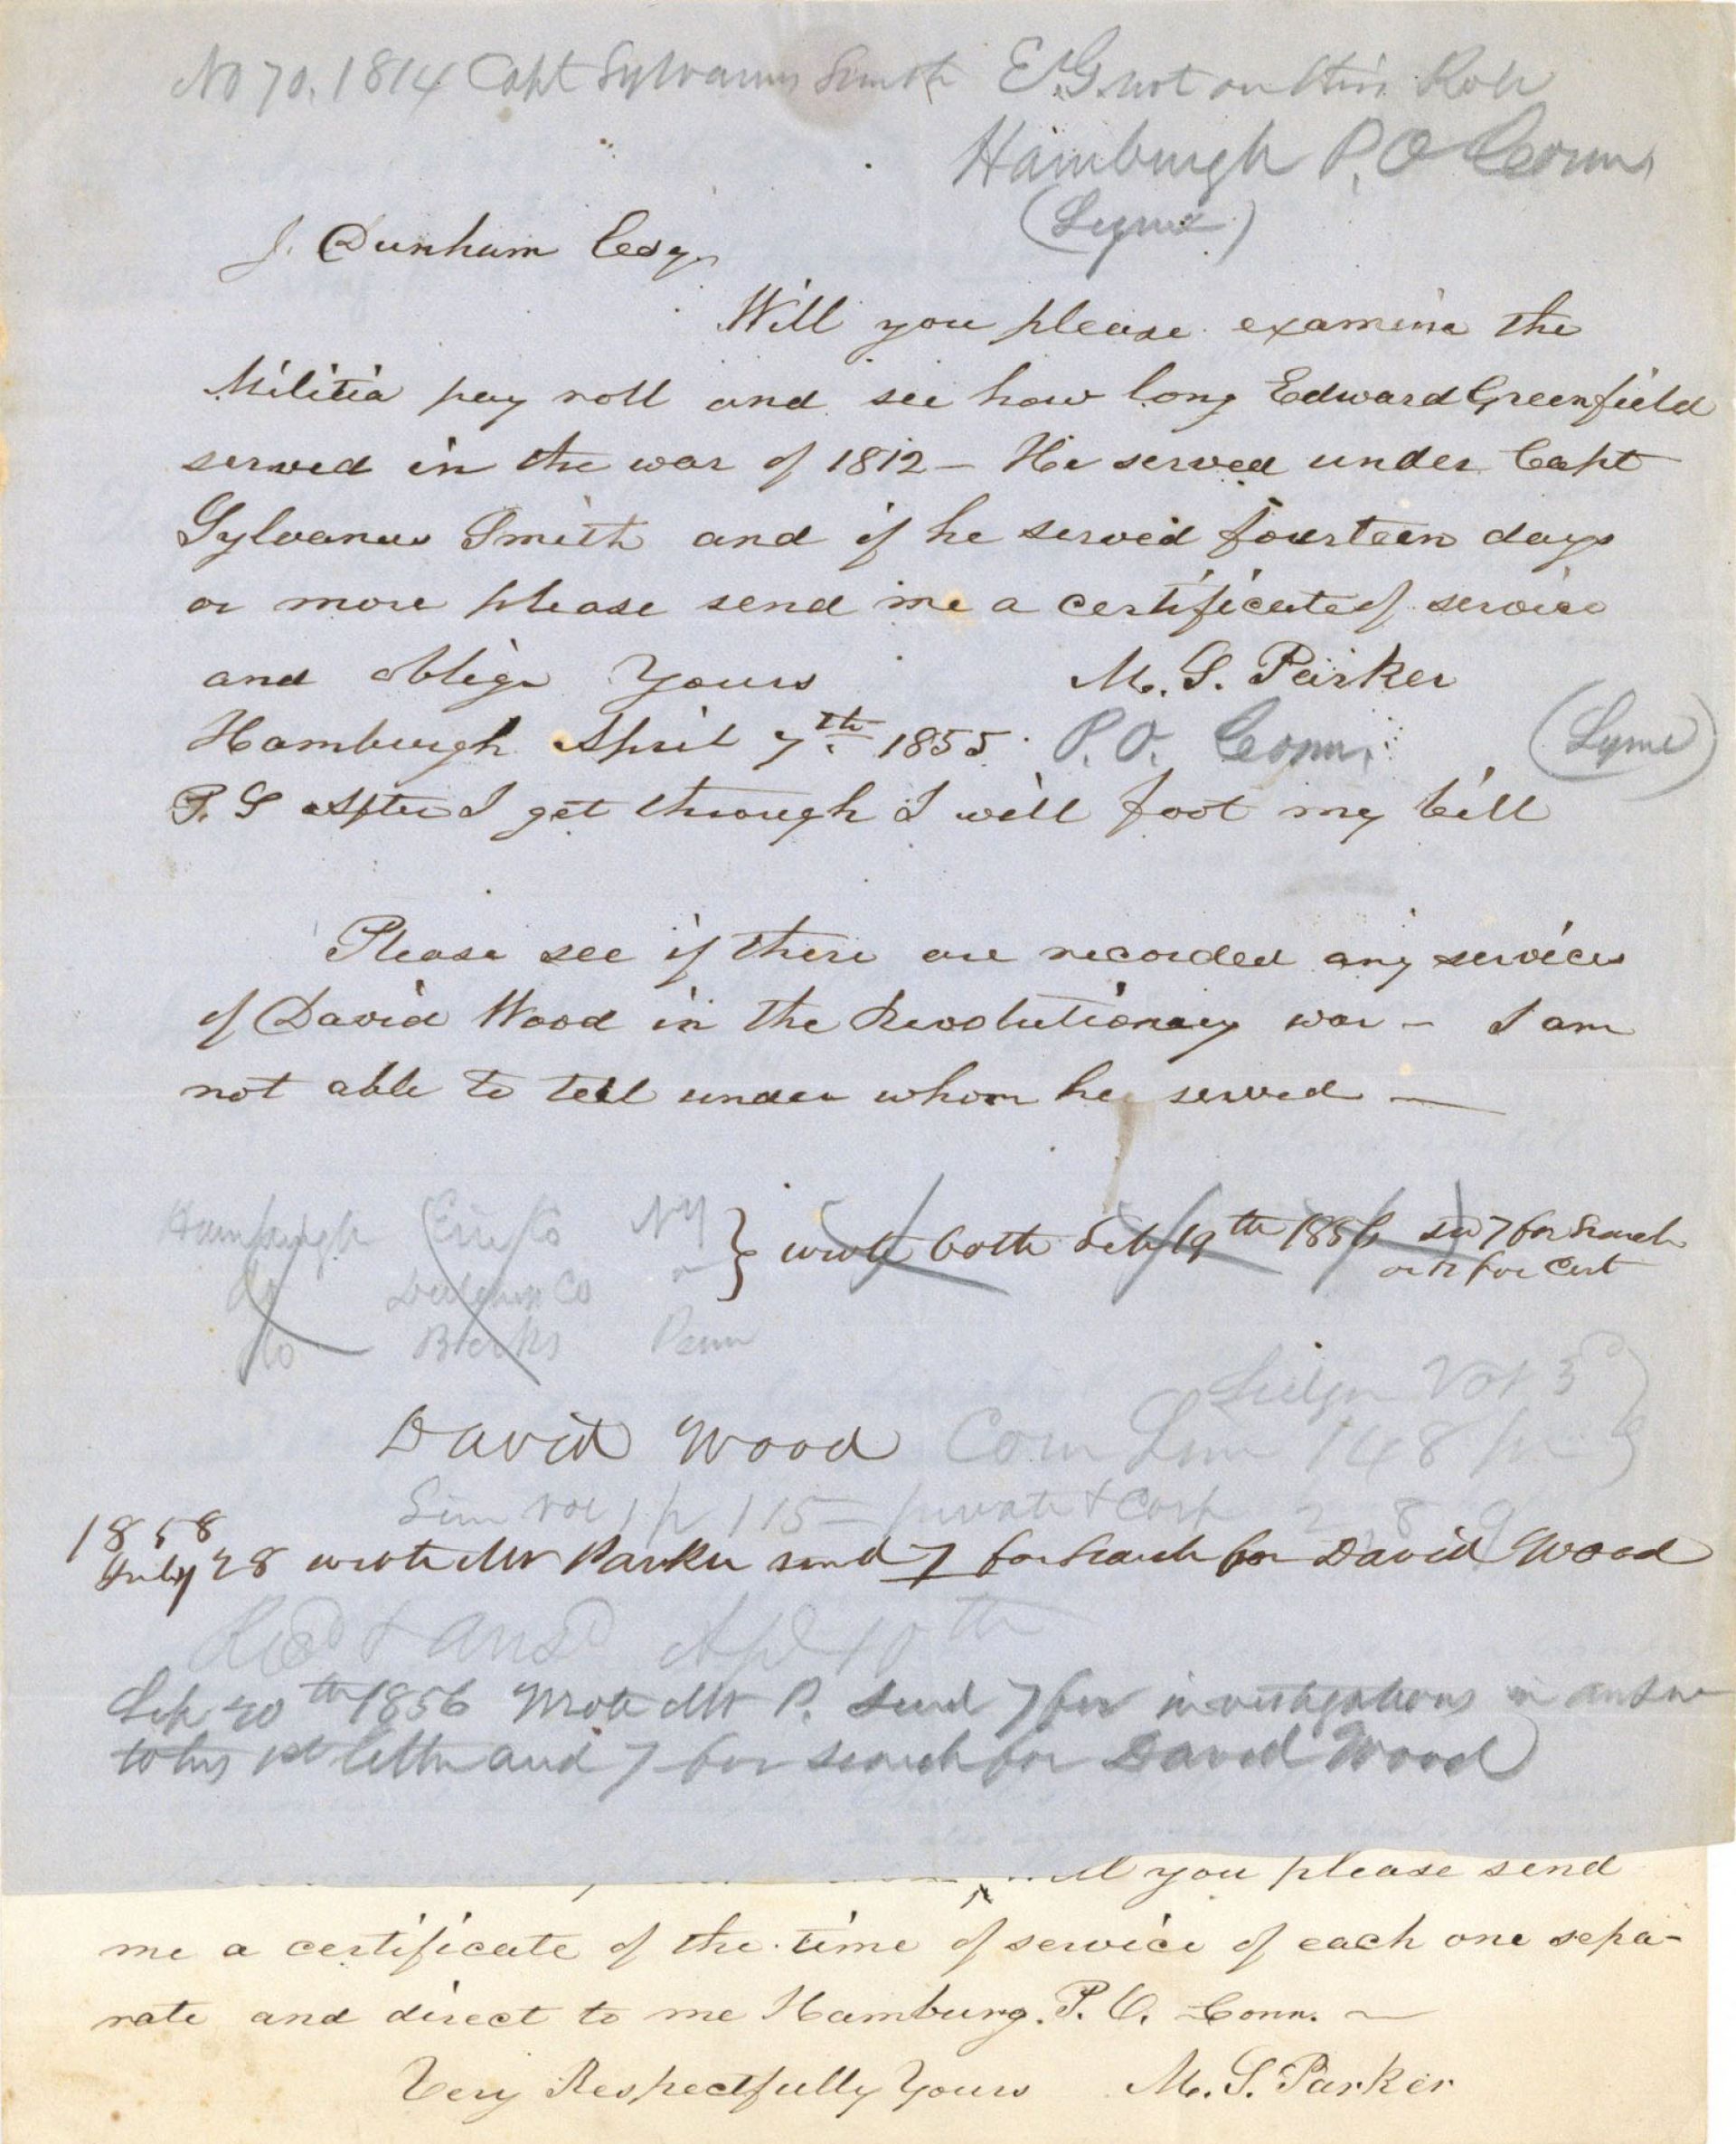 No 70. 1814 Capt Sylvanus Smith E. G. not on this Roll
Hamburgh P. O. Conn
(Lyme)
J. Dunham Esq.
Will you please examine the
Militia pay roll and see how long Edward Greenfield
served in the war of 1812 – He served under Capt
Sylvanus Smith and if he served fourteen days
or more please send me a certificate of service
and oblige Yours M. S. Parker
Hamburgh April 7th 1855 P. O. Conn. (Lyme)
P. S after I get through I will foot my bill
Please see if there are recorded any services
of David Wood in the Revolutionary war – I am
not able to tell under whom he served —
Hamburgh Erie Co NY
do Co or
do Berks Penn
} wrote both 19th 1856 for Search
or for Cert
Vol 3
David Wood Com 148
vol 1 p 115 – private & Corp 2, 8, 9
1858
July 28 wrote Mr Parker send 7 for Search for David Wood
Recd & ansd Apl 10th
1856 Wrote Mr P. send 7 for investigations in answer
to his 1st letter and 7 for search for David Wood
you please send
me a certificate of the time of service of each one sepa-
rate and direct to me Hamburg. P. O. Conn. –
Very Respectfully Yours M. S. Parker